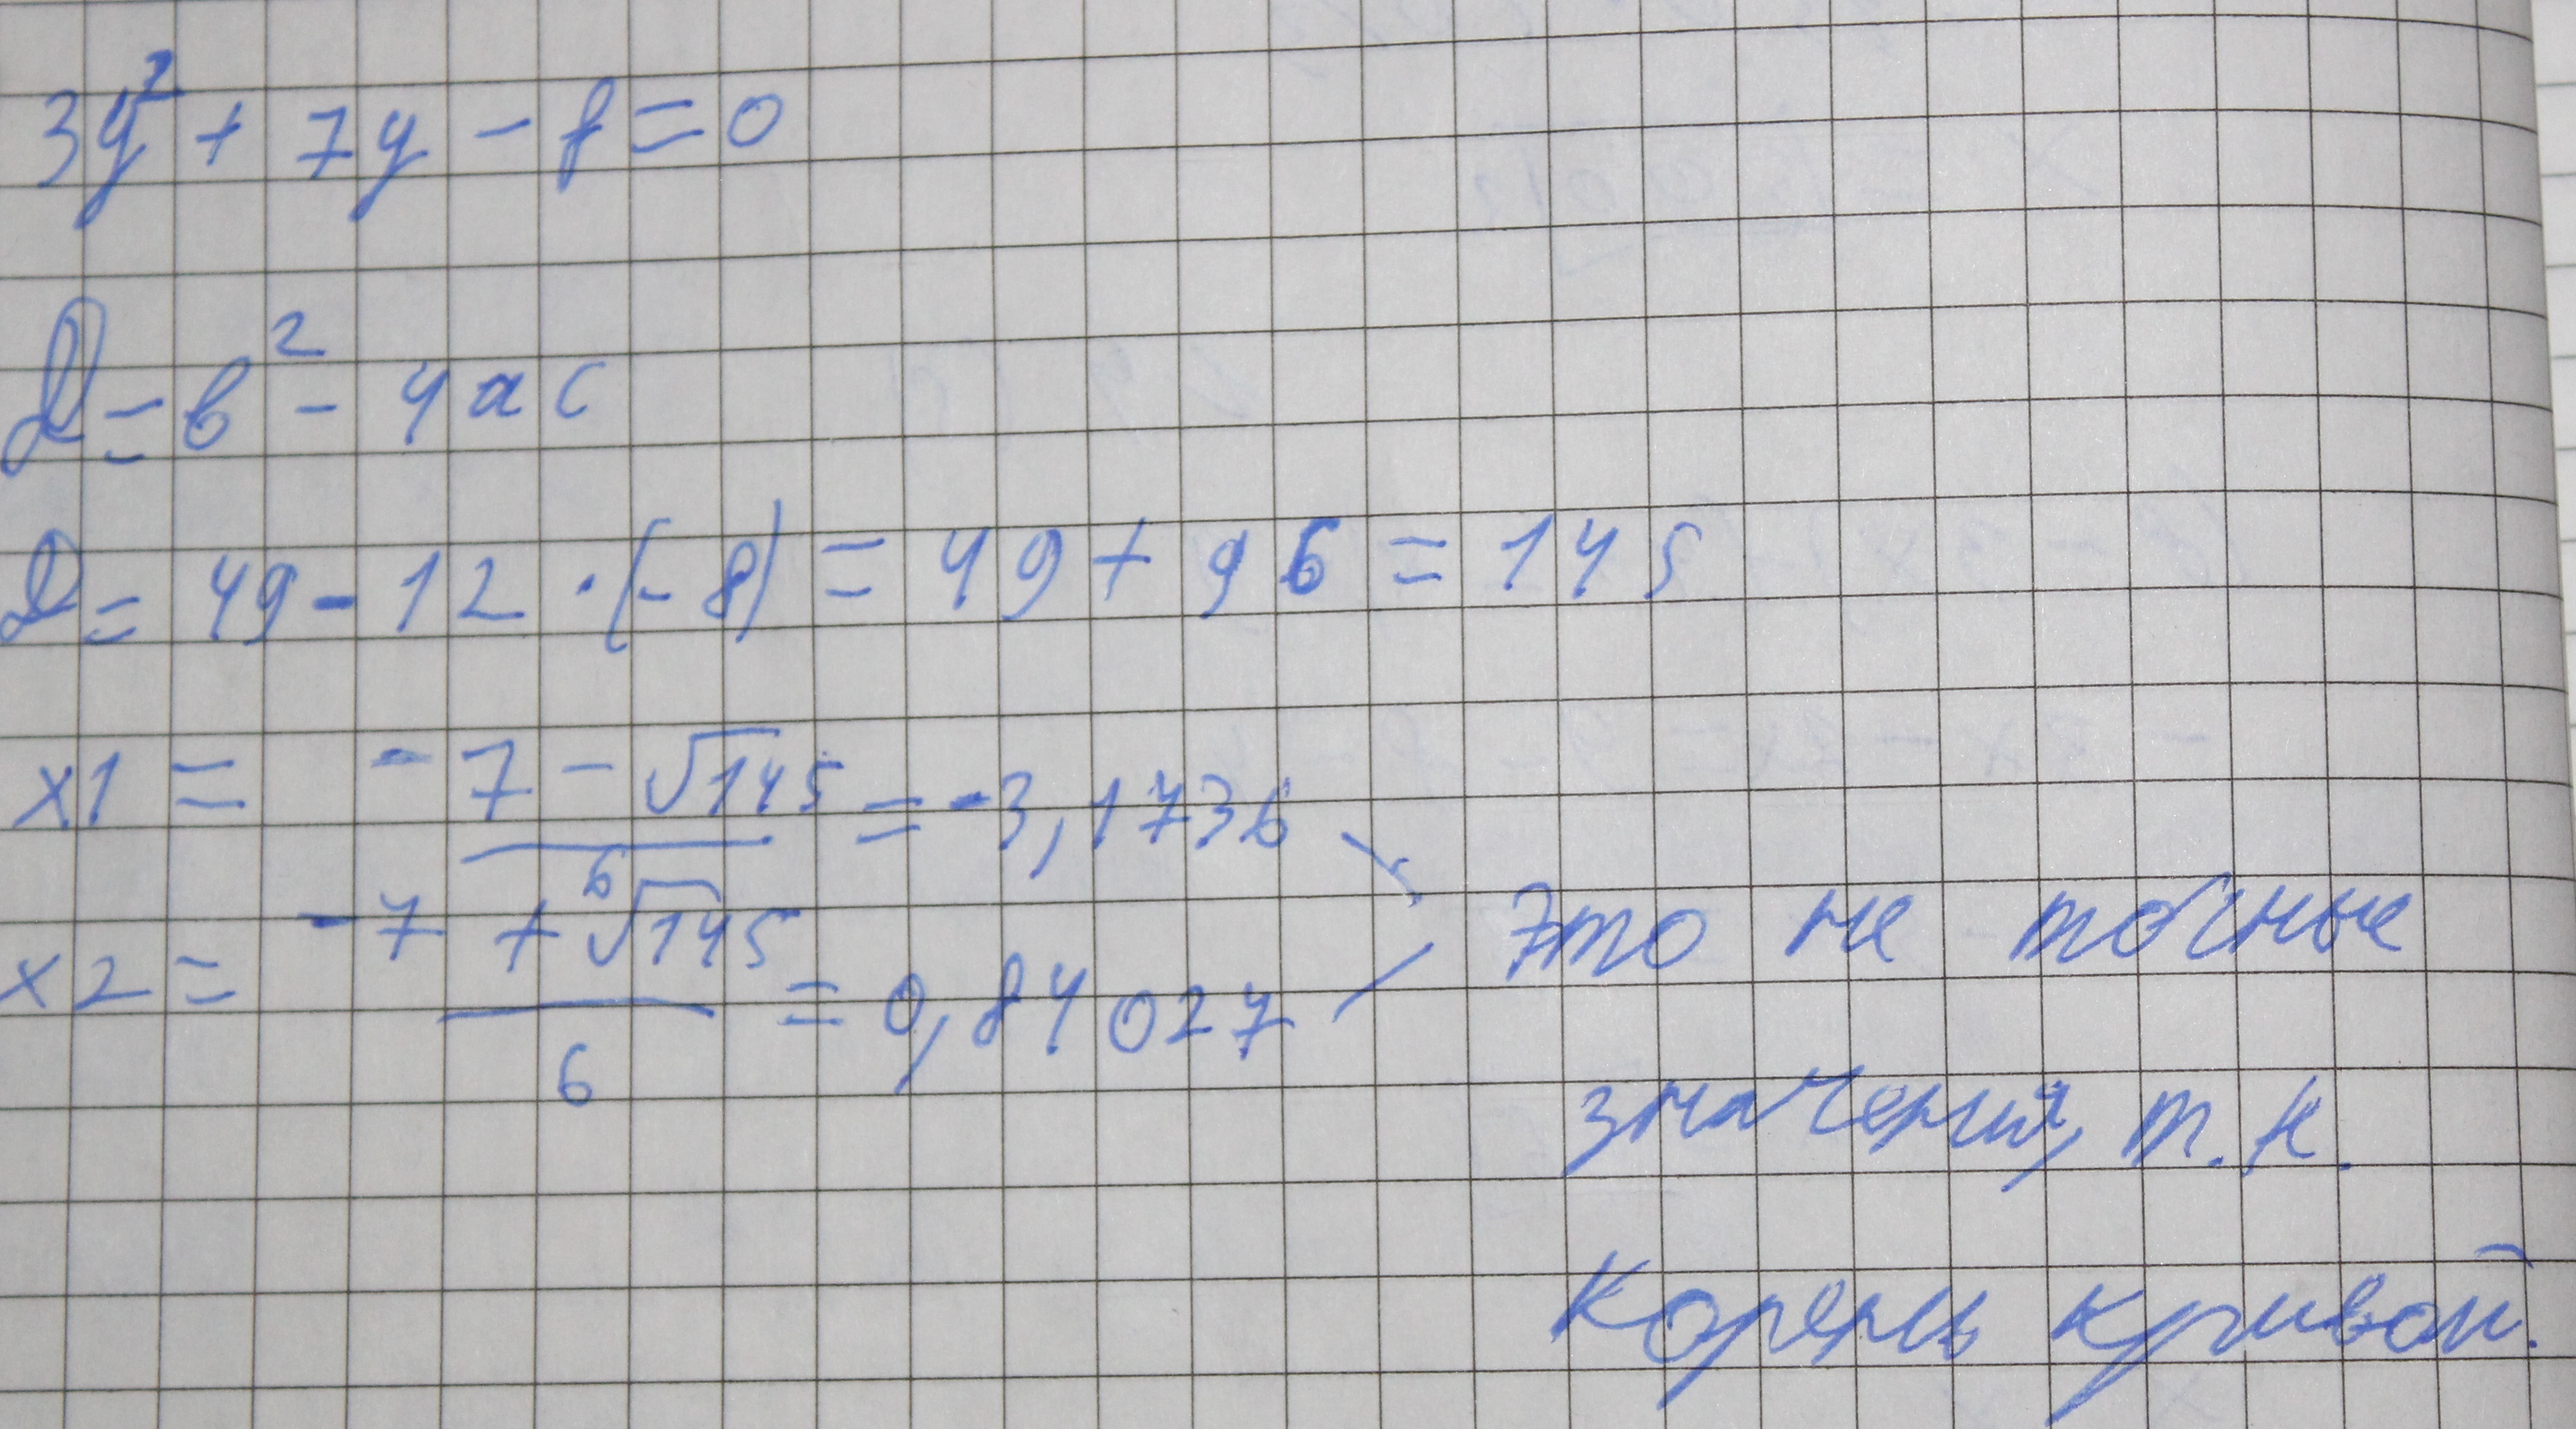 3y² + 7y - 8 = 0
D = b² - 4ac
D = 49 - 12 · (-8) = 49 + 96 = 145
x1 = (-7 - √145)/6 = -3,1736
x2 = (-7 + √145)/6 = 0,84027
Это не точные
значения, т.к.
корень кривой.